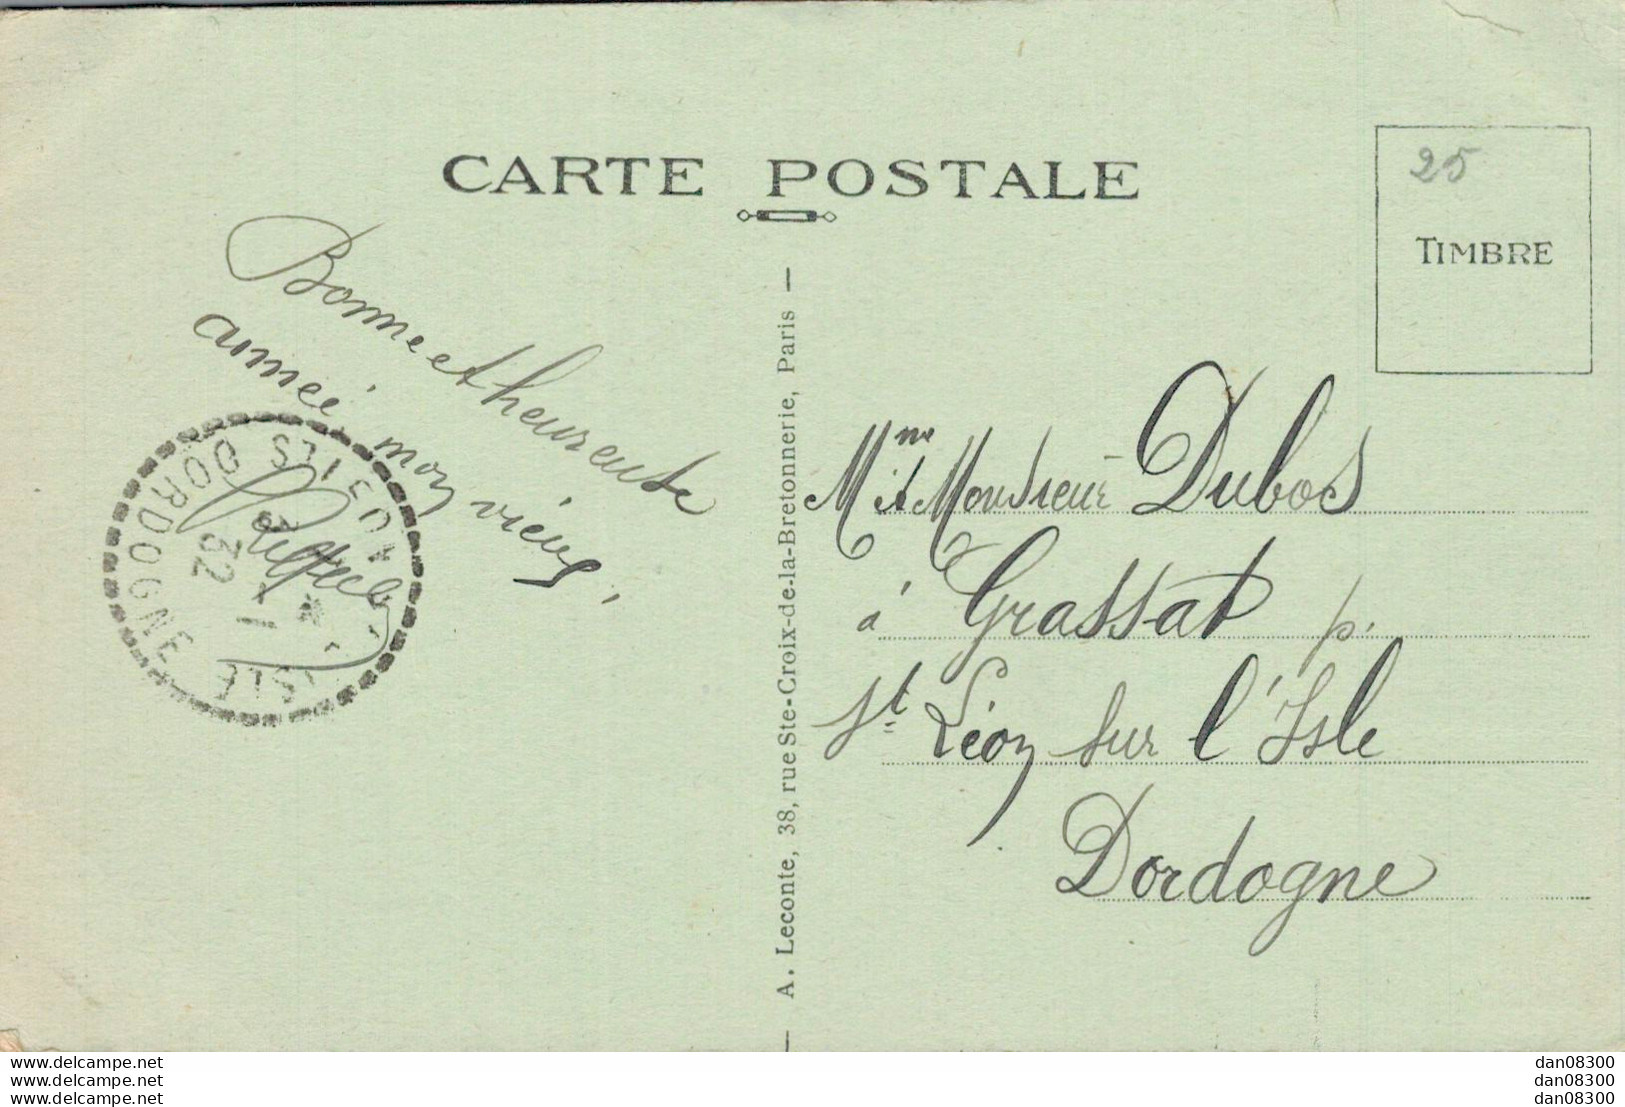 CARTE POSTALE
25
TIMBRE
Bonne et heureuse
année, mon vieux,
ST LEON S L'ISLE
DORDOGNE
1 -1
32
A. Leconte, 38, rue Ste-Croix-de-la-Bretonnerie, Paris
Mme et Monsieur Dubos
à Grassat p.
St Léon sur l'Isle
Dordogne
www.delcampe.net
www.delcampe.net
www.delcampe.net
dan08300
dan08300
dan08300